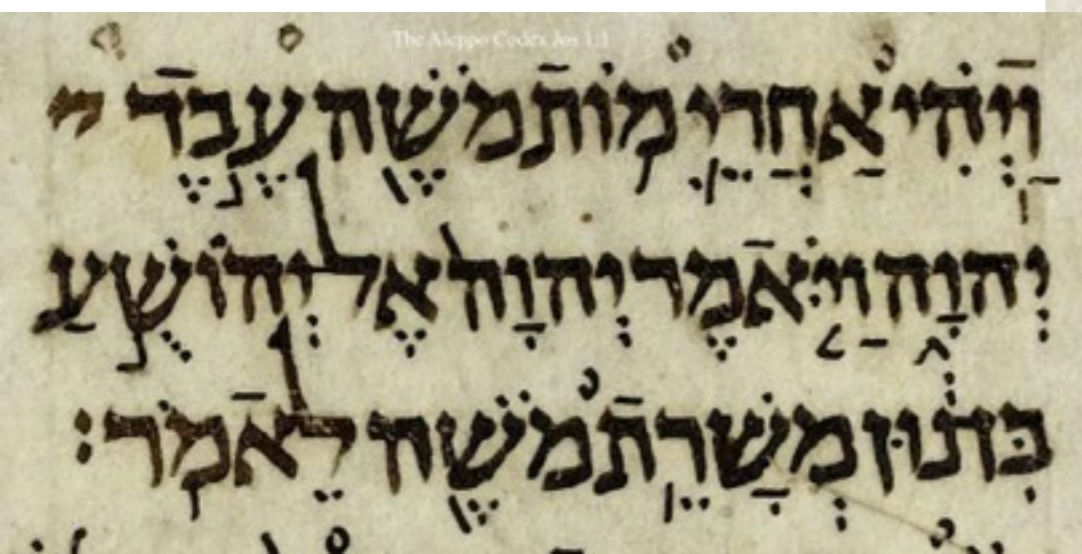 The Aleppo Codex Jos 1:1
וַיְהִ֗י אַחֲרֵ֛י מ֥וֹת מֹשֶׁ֖ה עֶ֣בֶד י
יְהוָ֑ה וַיֹּ֤אמֶר יְהוָה֙ אֶל יְהוֹשֻׁ֣עַ
בִּן נ֔וּן מְשָׁרֵ֥ת מֹשֶׁ֖ה לֵאמֹֽר׃